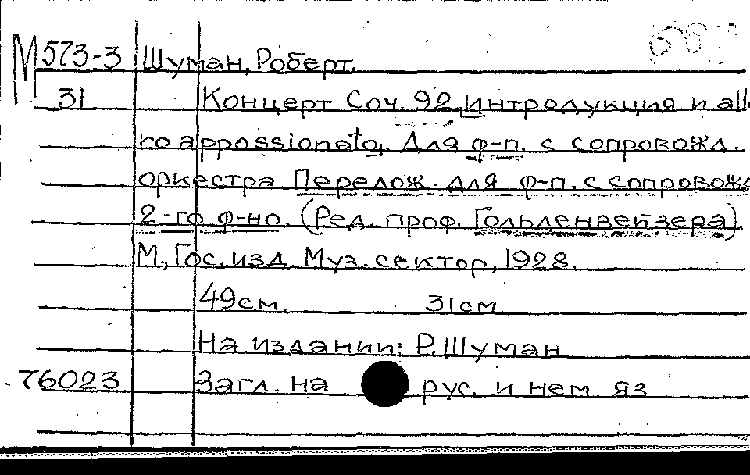 М573-3 Шуман, Роберт.
31 Концерт Соч. 92 Интродукция и all
ro appassionato. Для ф-п. с сопровожд.
оркестра Перелож. для ф-п. с сопровожд
2-го ф-но. (Ред. проф. Гольденвейзера)
М, Гос. изд. Муз. сектор, 1928.
49см 31см
На издании: Р. Шуман
76023 Загл. на рус. и нем яз